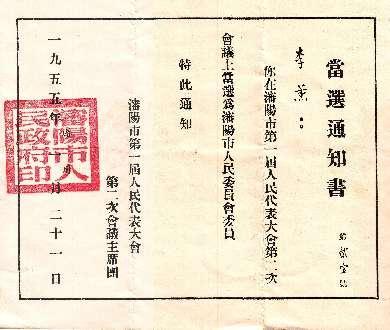 當選通知書
李薰:
你在瀋陽市第一屆人民代表大會第二次
會議上當選爲瀋陽市人民委員會委員
特此通知
瀋陽市第一屆人民代表大會
第二次會議主席團
一九五五年 月二十一日
瀋陽市人民政府印